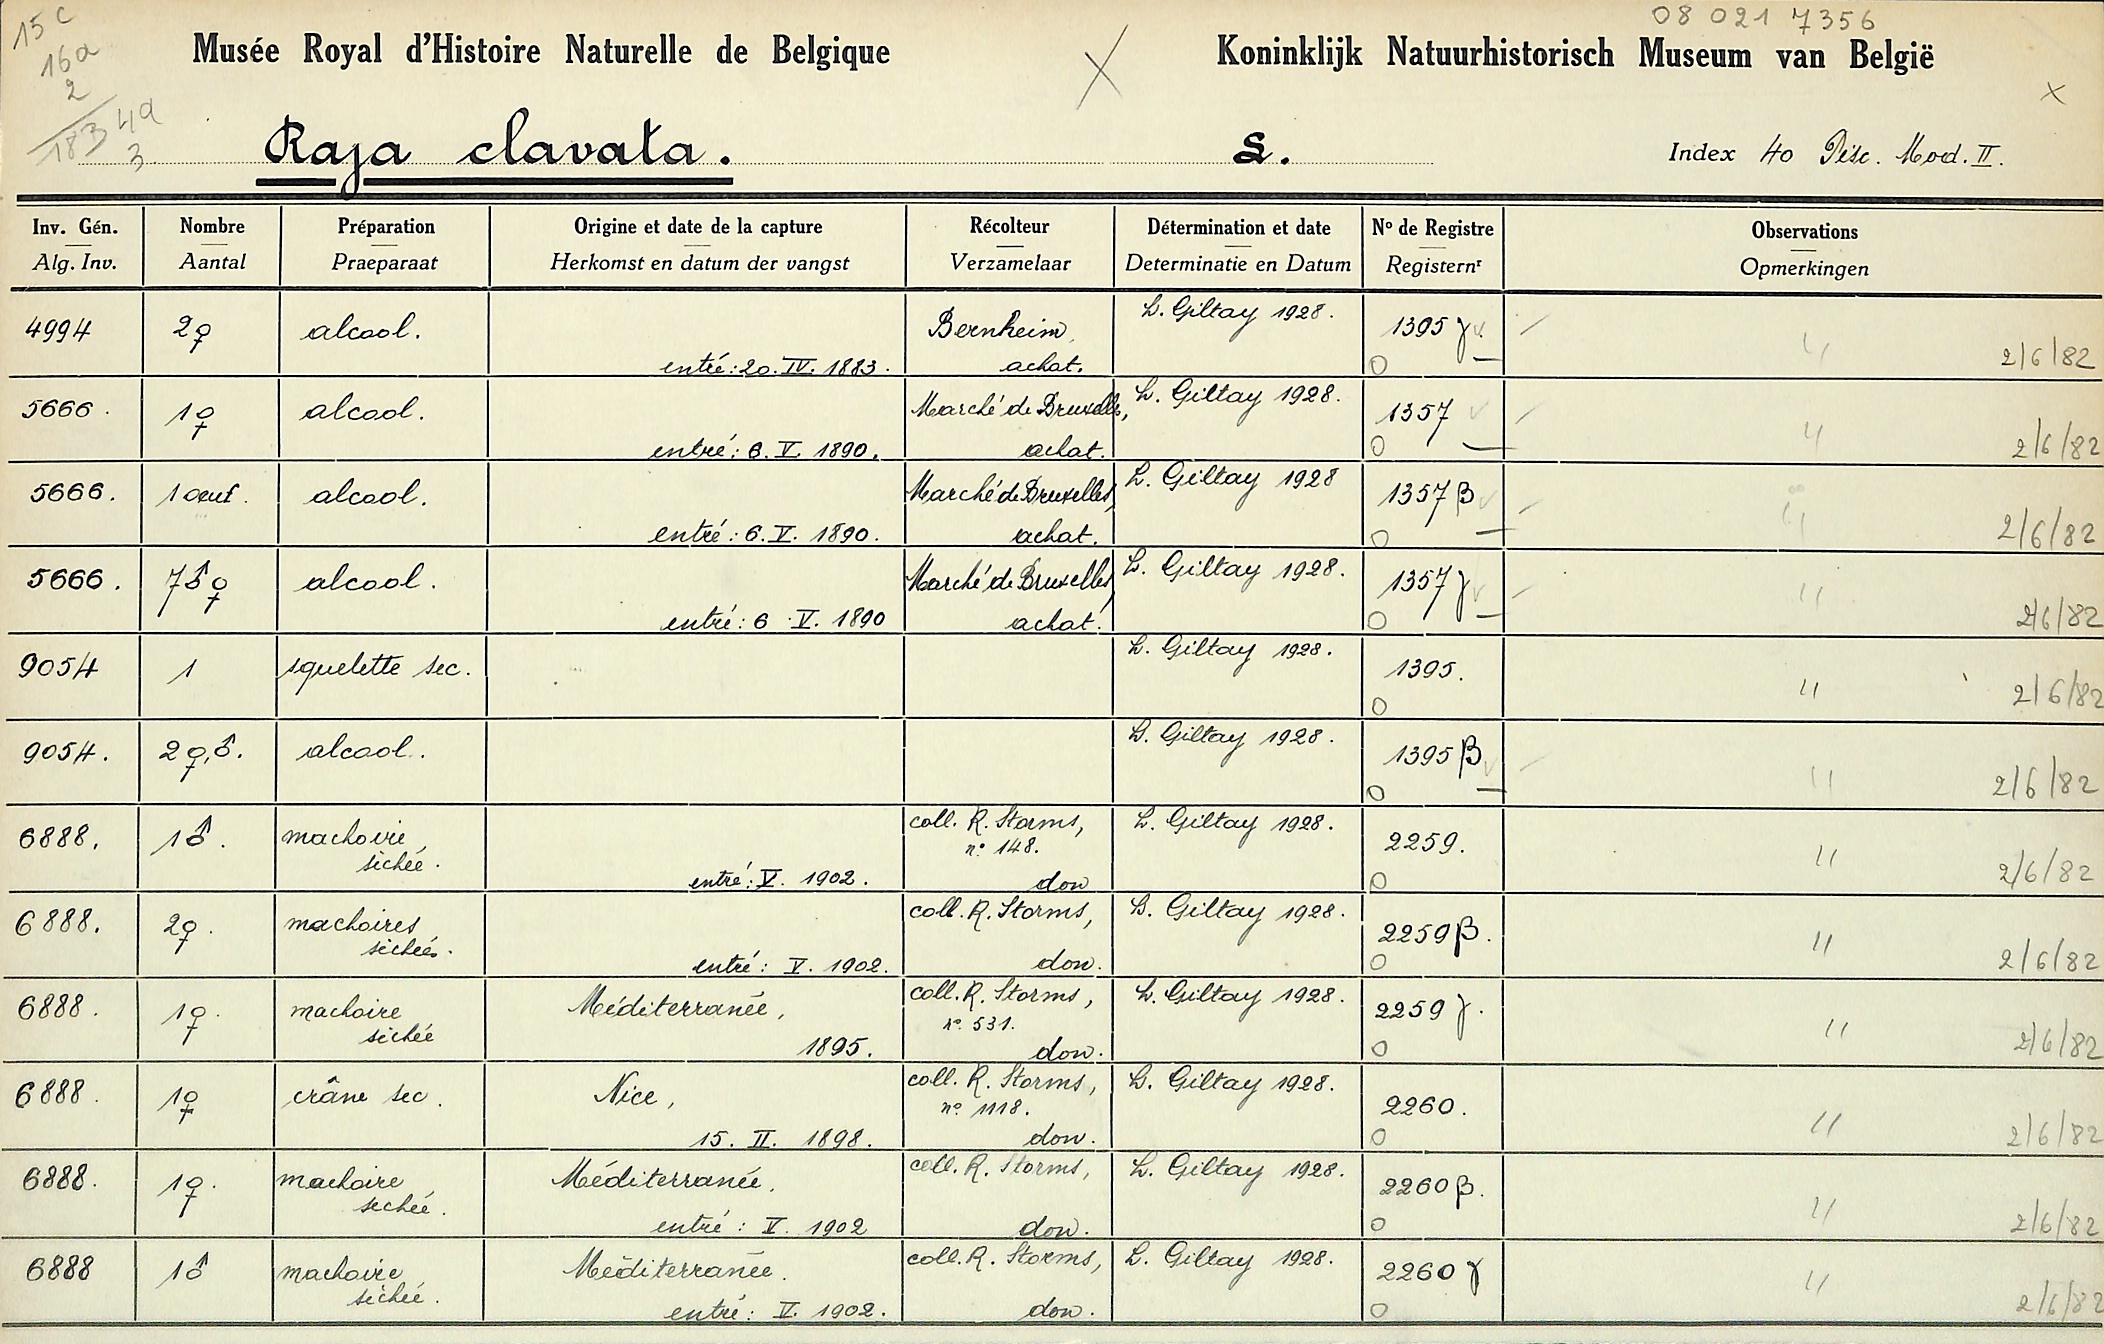 15 c
16a
2
183 4a
3.
08 021 7356
Musée Royal d'Histoire Naturelle de Belgique X Koninklijk Natuurhistorisch Museum van België
x
Raja clavata. S. Index 40 Pisc. Mod. II.
Inv. Gén. Nombre Préparation Origine et date de la capture Récolteur Détermination et date Nº de Registre Observations
Alg. Inv. Aantal Praeparaat Herkomst en datum der vangst Verzamelaar Determinatie en Datum Registernr Opmerkingen
4994 2♀ alcool. Bernheim, L. Giltay 1928. 1395 γ
entré: 20. IV. 1883. achat. O " 2/6/82
5666. 1♀ alcool. Marché de Bruxelles, L. Giltay 1928. 1357
entré: 6. V. 1890. achat. O " 2/6/82
5666. 1 œuf. alcool. Marché de Bruxelles, L. Giltay 1928 1357 β
entré: 6. V. 1890. achat. O " 2/6/82
5666. 7♂♀ alcool. Marché de Bruxelles, L. Giltay 1928. 1357 γ
entré: 6 V. 1890 achat. O " 2/6/82
9054 1 squelette sec. L. Giltay 1928. 1395.
O " 2/6/82
9054. 2♀,♂. alcool. L. Giltay 1928. 1395 β
O " 2/6/82
6888. 1♂. machoire coll. R. Storms, L. Giltay 1928. 2259.
séchée. nº 148. "
entré: V. 1902. don O 2/6/82
6888. 2♀. machoires coll. R. Storms, L. Giltay 1928. 2259 β.
séchées. "
entré: V. 1902. don. O 2/6/82
6888. 1♀. machoire Méditerranée, coll. R. Storms, L. Giltay 1928. 2259 γ.
séchée nº 531. "
1895. don. O 2/6/82
6888. 1♀ crâne sec. Nice, coll. R. Storms, L. Giltay 1928. 2260.
nº 1118. "
15. II. 1898. don. O 2/6/82
6888. 1♀. machoire Méditerranée. coll. R. Storms, L. Giltay 1928. 2260 β.
séchée. "
entré: V. 1902 don. O 2/6/82
6888 1♂ machoire Méditerranée. coll. R. Storms, L. Giltay 1928. 2260 γ
séchée. "
entré: V. 1902. don. O 2/6/82